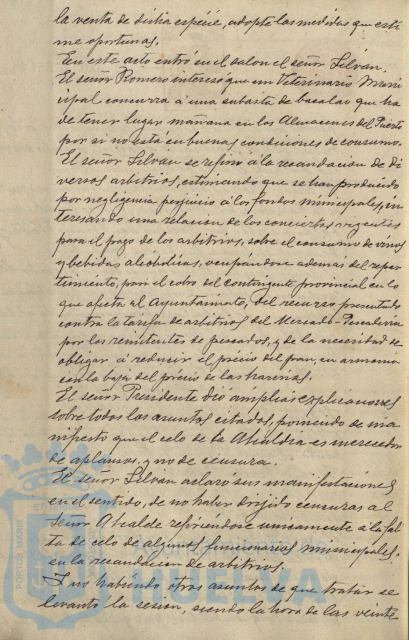 la venta de dicha especie, adopte las medidas que esti
me oportunas.
En este acto entró en el salon el señor Silván.
El señor Romero intereso que un Veterinario Muni
cipal concurra á una subasta de bacalao que ha
de tener lugar mañana en los Almacenes del Puerto
por si no está en buenas condiciones de consumo.
El señor Silvan se refirió á la recaudacion de di
versos arbitrios, estimando que se han producido
por negligencia perjuicio á los fondos municipales, in
teresando una relacion de los conciertos vigentes
para el pago de los arbitrios, sobre el consumo de vinos
y bebidas alcoholicas, ocupándose ademas del repar
timiento, para el cobro del contingente provincial en lo
que afecta al Ayuntamiento, del recurso presentado
contra la tarifa de arbitrios del Mercado-Pescaderia
por los remitentes de pescados, y de la necesidad de
obligar á reducir el precio del pan, en armonia
con la baja del precio de las harinas.
El señor Presidente dió amplias explicaciones
sobre todos los asuntos citados, poniendo de ma
nifiesto que el celo de la Alcaldia es merecedor
de aplauso, y no de censura.
El señor Silvan aclaro sus manifestaciones
en el sentido, de no haber dirijido censuras al
Señor Alcalde refiriendose unicamente a la fal
ta de celo de algunos funcionarios municipales
en la recaudacion de arbitrios.
Y no habiendo otros asuntos de que tratar se
levantó la sesion, siendo la hora de las veinte
PORTUS MARIS
HUELVA